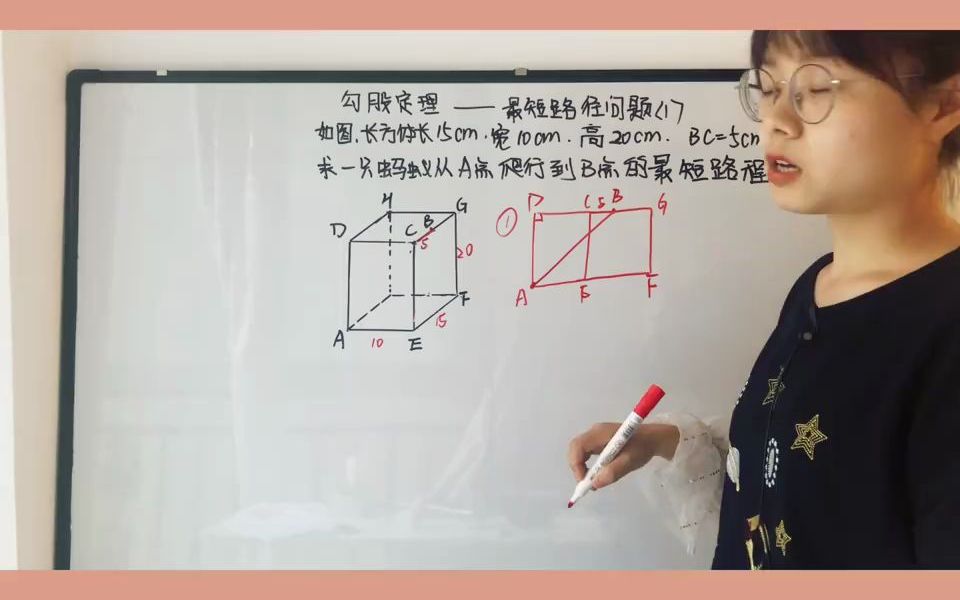 勾股定理 —— 最短路径问题(1)
如图,长方体长15cm.宽10cm.高20cm. BC=5cm
求一只蚂蚁从A点爬行到B点的最短路程
H G
D C B
5
20
F
15
A 10 E
① D C 5 B G
A E F